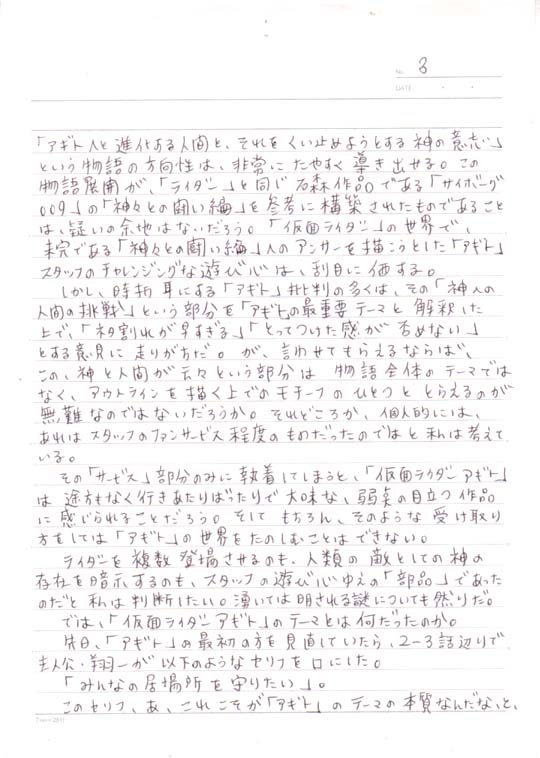 No. 3
DATE ・ ・
「アギト人と進化する人間と、それをくい止めようとする神の意志」
という物語の方向性は、非常にたやすく導き出せる。この
物語展開が、「ライダー」と同じ石森作品である「サイボーグ
009」の「神々との闘い編」を参考に構築されたものであること
は、疑いの余地はないだろう。「仮面ライダー」の世界で、
未完である「神々との闘い編」へのアンサーを描こうとした「アギト」
スタッフのチャレンジングな遊び心は、刮目に価する。
しかし、時折耳にする「アギト」批判の多くは、その「神への
人間の挑戦」という部分を「アギト」の最重要テーマと解釈した
上で、「ネタ割れが早すぎる」「とってつけた感が否めない」
とする意見に走りがちだ。が、言わせてもらえるならば、
この、神と人間が云々という部分は物語全体のテーマでは
なく、アウトラインを描く上でのモチーフのひとつととらえるのが
無難なのではないだろうか。それどころか、個人的には、
あれはスタッフのファンサービス程度のものだったのではと私は考えて
いる。
その「サービス」部分のみに執着してしまうと、「仮面ライダーアギト」
は途方もなく行きあたりばったりで大味な、弱点の目立つ作品
に感じられることだろう。そしてもちろん、そのような受け取り
方をしては「アギト」の世界をたのしむことはできない。
ライダーを複数登場させるのも、人類の敵としての神の
存在を暗示するのも、スタッフの遊び心ゆえの「部品」であった
のだと私は判断したい。湧いては明される謎についても然りだ。
では、「仮面ライダーアギト」のテーマとは何だったのか。
先日、「アギト」の最初の方を見直していたら、2-3話辺りで
主人公・翔一が以下のようなセリフを口にした。
「みんなの居場所を守りたい」。
このセリフ、あ、これこそが「アギト」のテーマの本質なんだな、と、